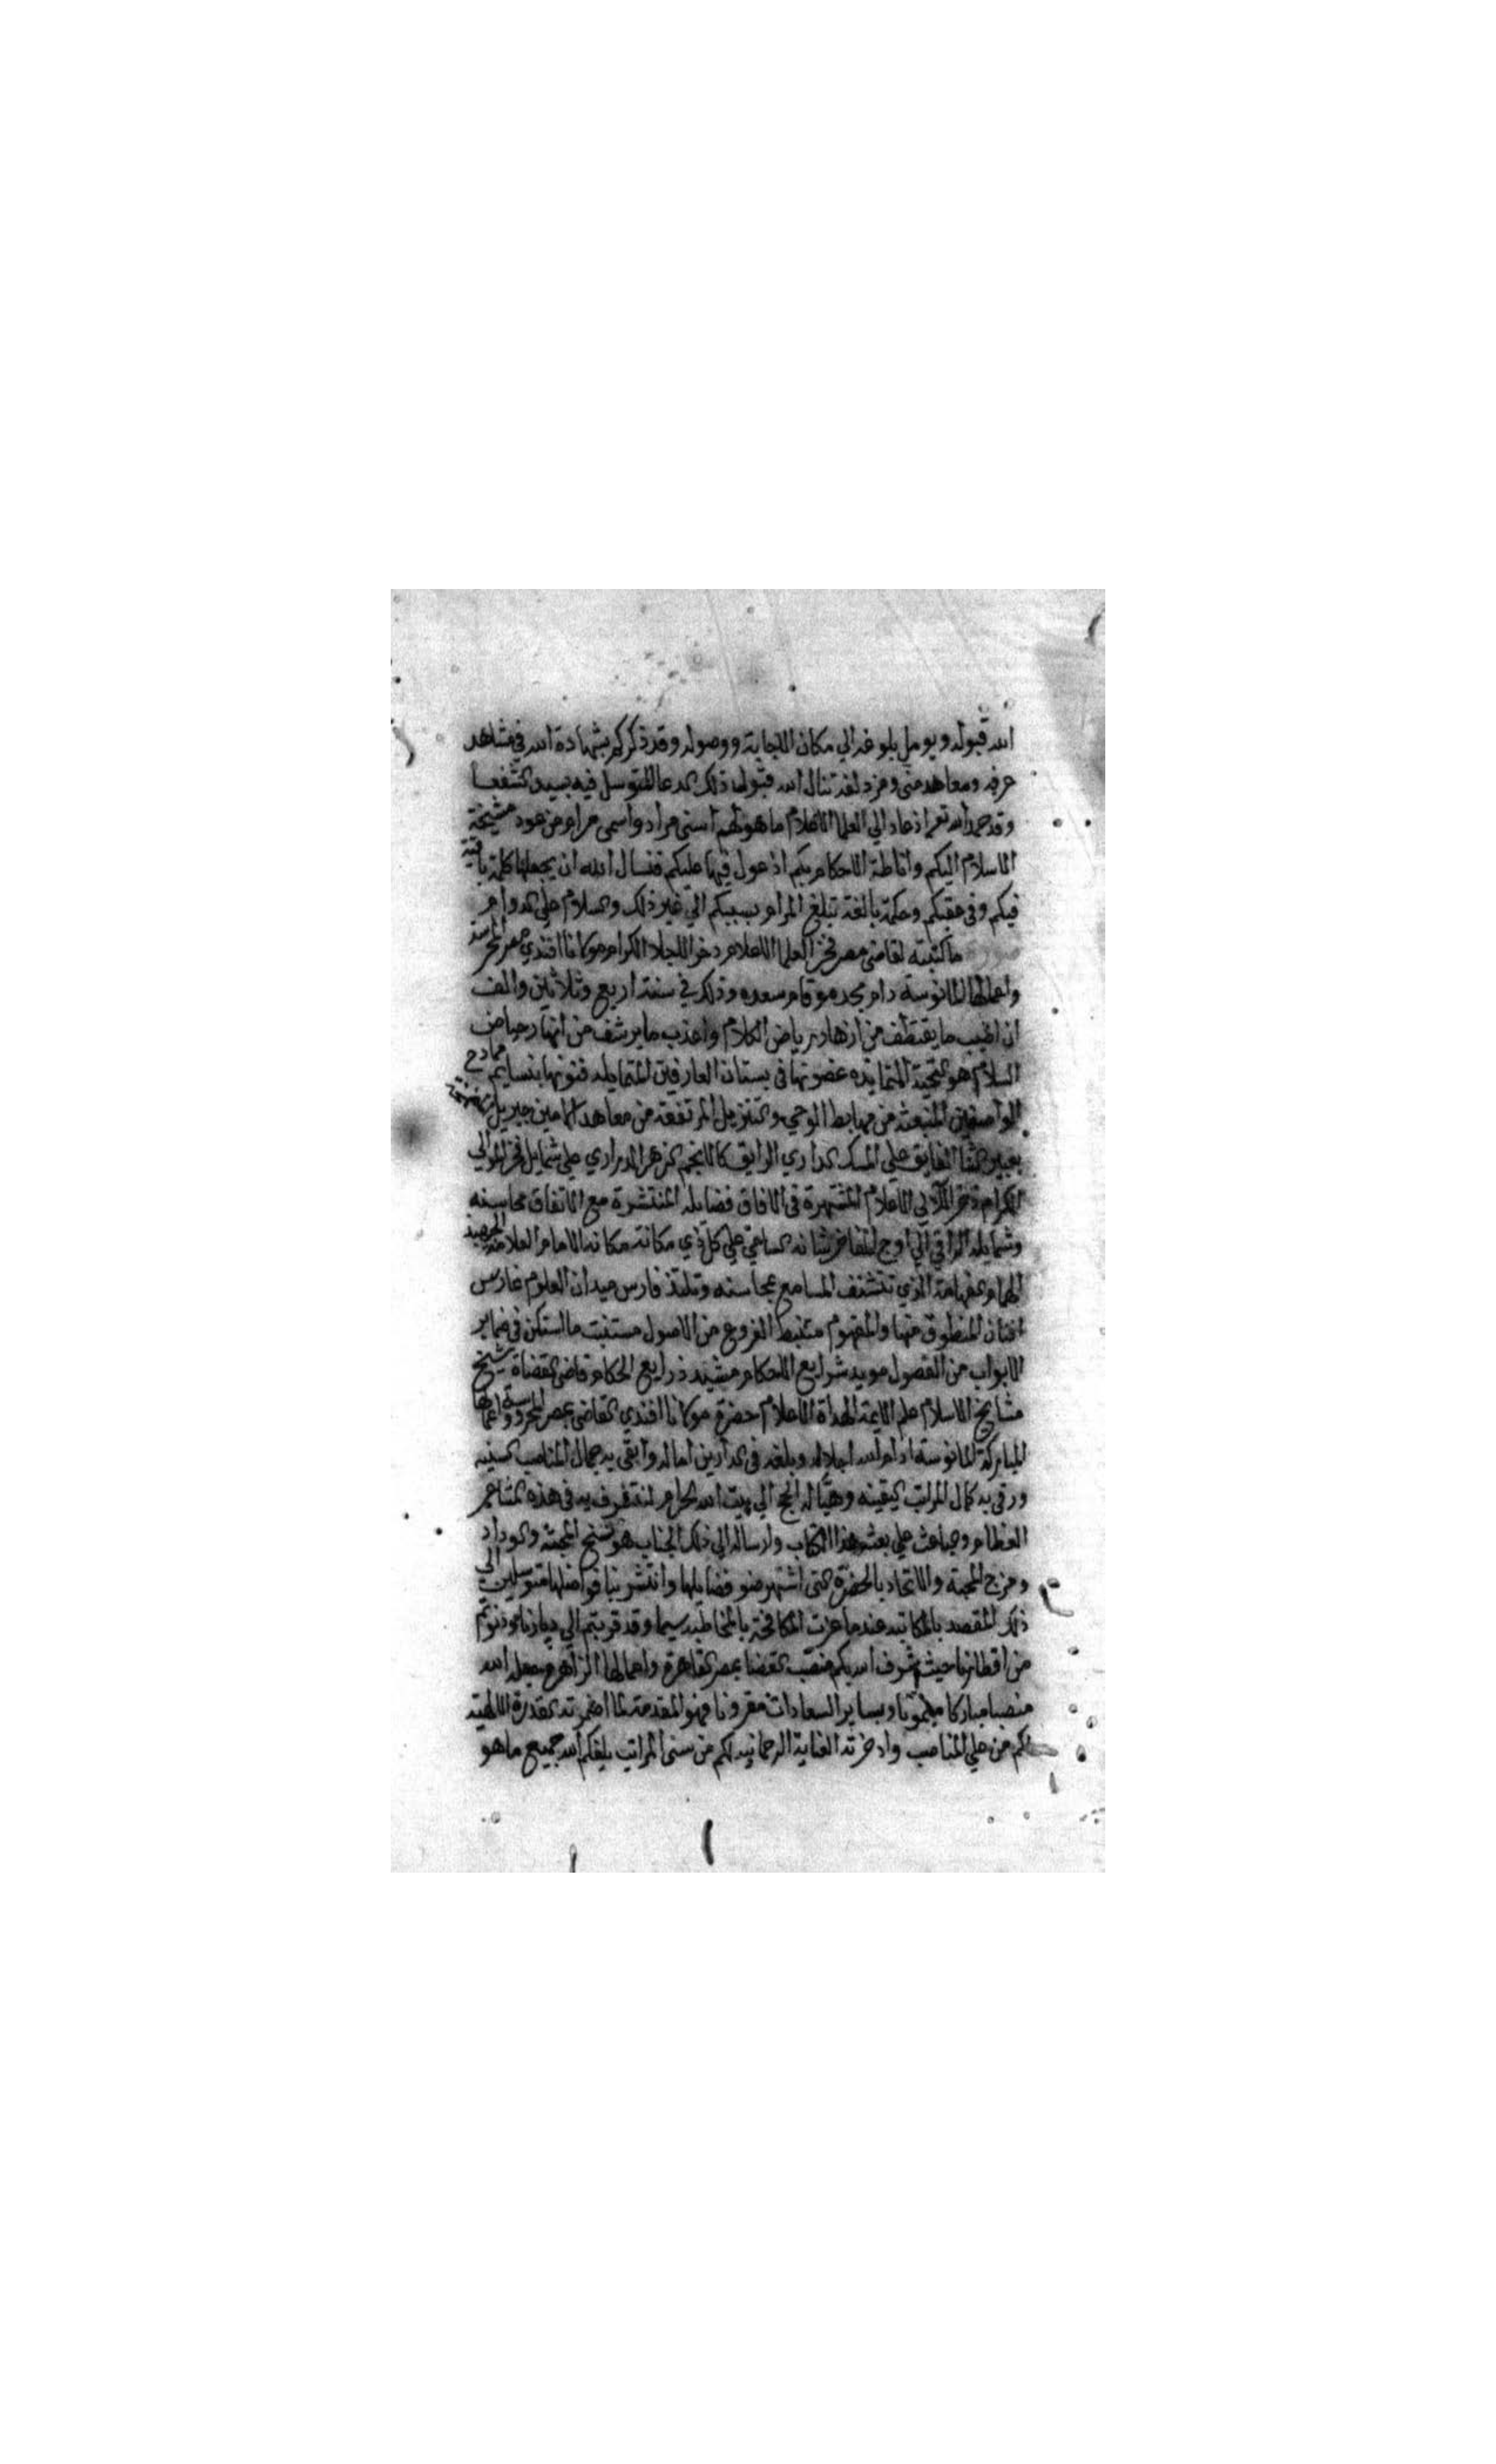 الله قبوله ويومل بلوغه الي مكان الاجابة ووصوله وقد ذكركم بشهادة الله في مشاهد
عرفه ومعاهد منى ومزدلفة تنال الله قبولها ذلك الدعا المتوسل فيه بسيد الشفعا
وقد حمد الله تعم اذ عاد الي العلما الاعلام ما هو لهم اسنى مراد واسمى مرام من عود مشيخة
الاسلام اليكم واناطة الاحكام بكم اذ عول فيها عليكم فنسال الله ان يجعلها كلمة باقية
فيكم وفي عقبكم وحكمة بالغة تبلغ المرام بسببكم الي غير ذلك والسلام علي الدوام
ما كتبته لقاضي مصر فخر العلما الاعلام ذخر الاجلا الكرام مولانا افندي مصر المحرسة
واعمالها المانوسة دام مجده وقام سعده وذلك في سنة اربع وثلاثين والف
ان اطيب ما يقتطف من ازهار رياض الكلام واعذب ما يرشف من انهار حياض
السلام هو التحية المتمايده غصونها في بستان العارفين المتمايله فنونها بنسايم ممادح
الواصفين المنبعثه من مهابط الوحي والتنزيل المرتفعة من معاهد الامين جبريل
بعبير الثنا الفايق علي المسك الداري الرايق كالانجم الزهر الدراري علي شمايل فخر الموالي
الكرام ذخر الآلي الاعلام المشتهرة في الافاق فضايله المنتشرة مع الاتفاق محاسنه
وشمايله الراقي الي اوج التفاخر شانه السامي علي كل ذي مكانة مكانه الامام العلامة الجهبذ
الهمام الفهامة الذي تتشنف المسامع بمحاسنه وتلتذ فارس ميدان العلوم غارس
افنان المنطوق منها والمفهوم مثبط الفروع من الاصول مستنبت ما استكن في ضماير
الابواب من الفصول مويد شرايع الاحكام مشيد ذرايع الحكام قاضي القضاة شيخ
مشايخ الاسلام علم الايمة الهداة الاعلام حضرة مولانا افندي القاضي بمصر المحروسة واعمالها
المباركة المانوسة ادام الله اجلاله وبلغه في الدارين اماله وابقى به جمال المناصب السنيه
ورقي به كمال المراتب اليقينه وهيا له الحج الي بيت الله الحرام لنتشرف به في هذه المشاعر
العظام والباعث علي بعث هذا الكتاب وارساله الي ذلك الجناب هو نسخ المحبة والوداد
ومزج المحبة والاتحاد بالحضرة التي اشتهر ضو فضايلها وانتشر بنا فواضلها متوسلين الي
ذلك المقصد بالمكاتبه عندما عزت المكافحة بالمخاطبه سيما وقد قربتم الي ديارنا ودنوتم
من اقطارنا حيث شرف الله بكم منصب القضا بمصر القاهرة واعمالها الزاهرة جعله الله
منصبا مباركا ميمونا وبساير السعادات مقرونا فهو المقدمة لما اضمرته القدرة الالهية
لكم من علي المناصب وادخرته العناية الرحمانيه لكم من سنى المراتب بلغكم الله جميع ما هو